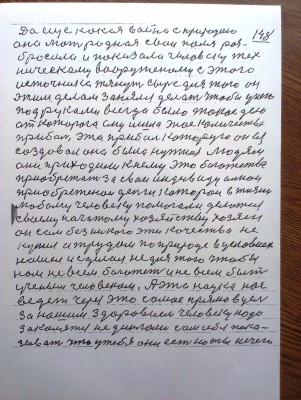 148
Да еще какая война с природою
она мать родная свои поля раз-
бросила и показала человеку тех
ническому вооруженому с этого
источника тянут сырье для того он
этим делом занялся делать чтобы у него
под руками всегда было такое дело
от которого ему имел это Количество
прибыл, эта прибыл которую он ей
создовал она была нужная людям
они приходили к нему это богатство
приобретат за свои индевидуалной
приобретеной денги которои в жизни
любому человеку помогали делатся
своему начатому хозяйству хозяен
он сам без никого эти качества не
купил а трудом по природе в условиях
нашел и сделал не для того чтобы
ном не всем богатет и не всем быть
ученым человеком. А эта наука нас
ведет через это самое прямо в цел
за нашим здоровием человеку надо
закалятся не днями сам себя пока-
зыват что у тебя они есть а ты нечего